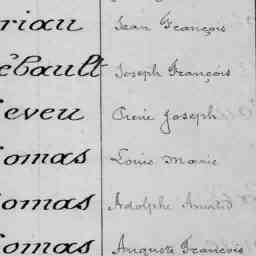 riau Jean François
ébault Joseph François
eveu Pierre Joseph
omas Louis Marie
omas Adolphe
omas Auguste François